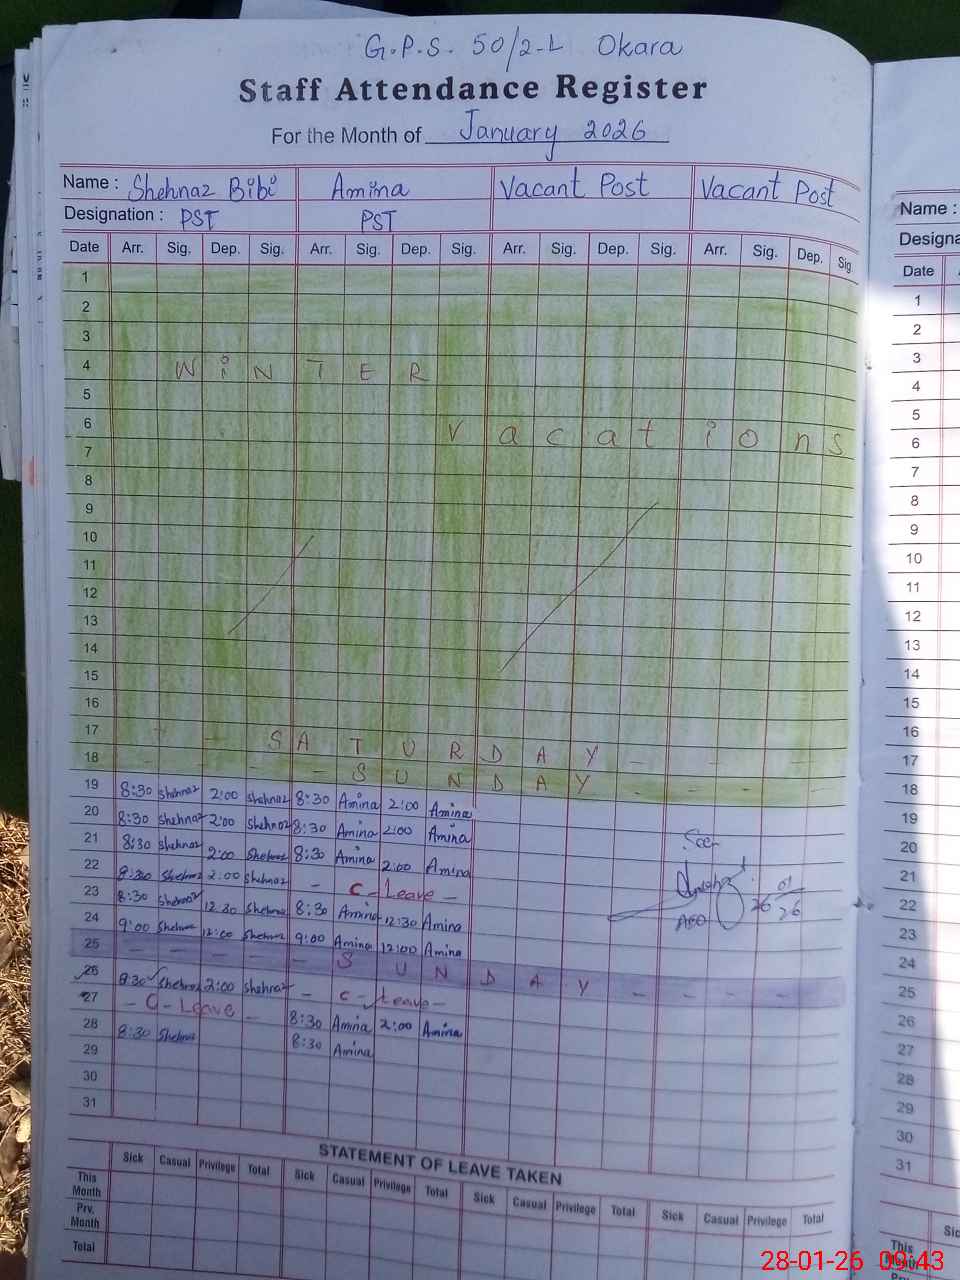 G.P.S. 50/2-L Okara
Staff Attendance Register
For the Month of January 2026
Name : Shehnaz Bibi Amina Vacant Post Vacant Post
Designation : PST PST
Date Arr. Sig. Dep. Sig. Arr. Sig. Dep. Sig. Arr. Sig. Dep. Sig. Arr. Sig. Dep. Sig.
1
2
3
4 WiNTER
5
6 Vacations
7
8
9
10
11
12
13
14
15
16
17 - - SATURDAY -
18 - - - - - SUNDAY - - - - -
19 8:30 Shehnaz 2:00 Shehnaz 8:30 Amina 2:00 Amina
20 8:30 Shehnaz 2:00 Shehnaz 8:30 Amina 2:00 Amina
21 8:30 Shehnaz 2:00 Shehnaz 8:30 Amina 2:00 Amina
22 8:30 Shehnaz 2:00 Shehnaz - C-Leave -
23 8:30 Shehnaz 12:30 Shehnaz 8:30 Amina 12:30 Amina
24 9:00 Shehnaz 12:00 Shehnaz 9:00 Amina 12:00 Amina
25 - - - - - SUNDAY - - - -
26 8:30 Shehnaz 2:00 Shehnaz - C-Leave -
27 - C-Leave - 8:30 Amina 2:00 Amina
28 8:30 Shehnaz 8:30 Amina
29
30
31
AEO 26 01 26
STATEMENT OF LEAVE TAKEN
Sick Casual Privilege Total Sick Casual Privilege Total Sick Casual Privilege Total Sick Casual Privilege Total
This Month
Prv. Month
Total
Name :
Designa
Date
1
2
3
4
5
6
7
8
9
10
11
12
13
14
15
16
17
18
19
20
21
22
23
24
25
26
27
28
29
30
31
Sic
This
28-01-26 09:43